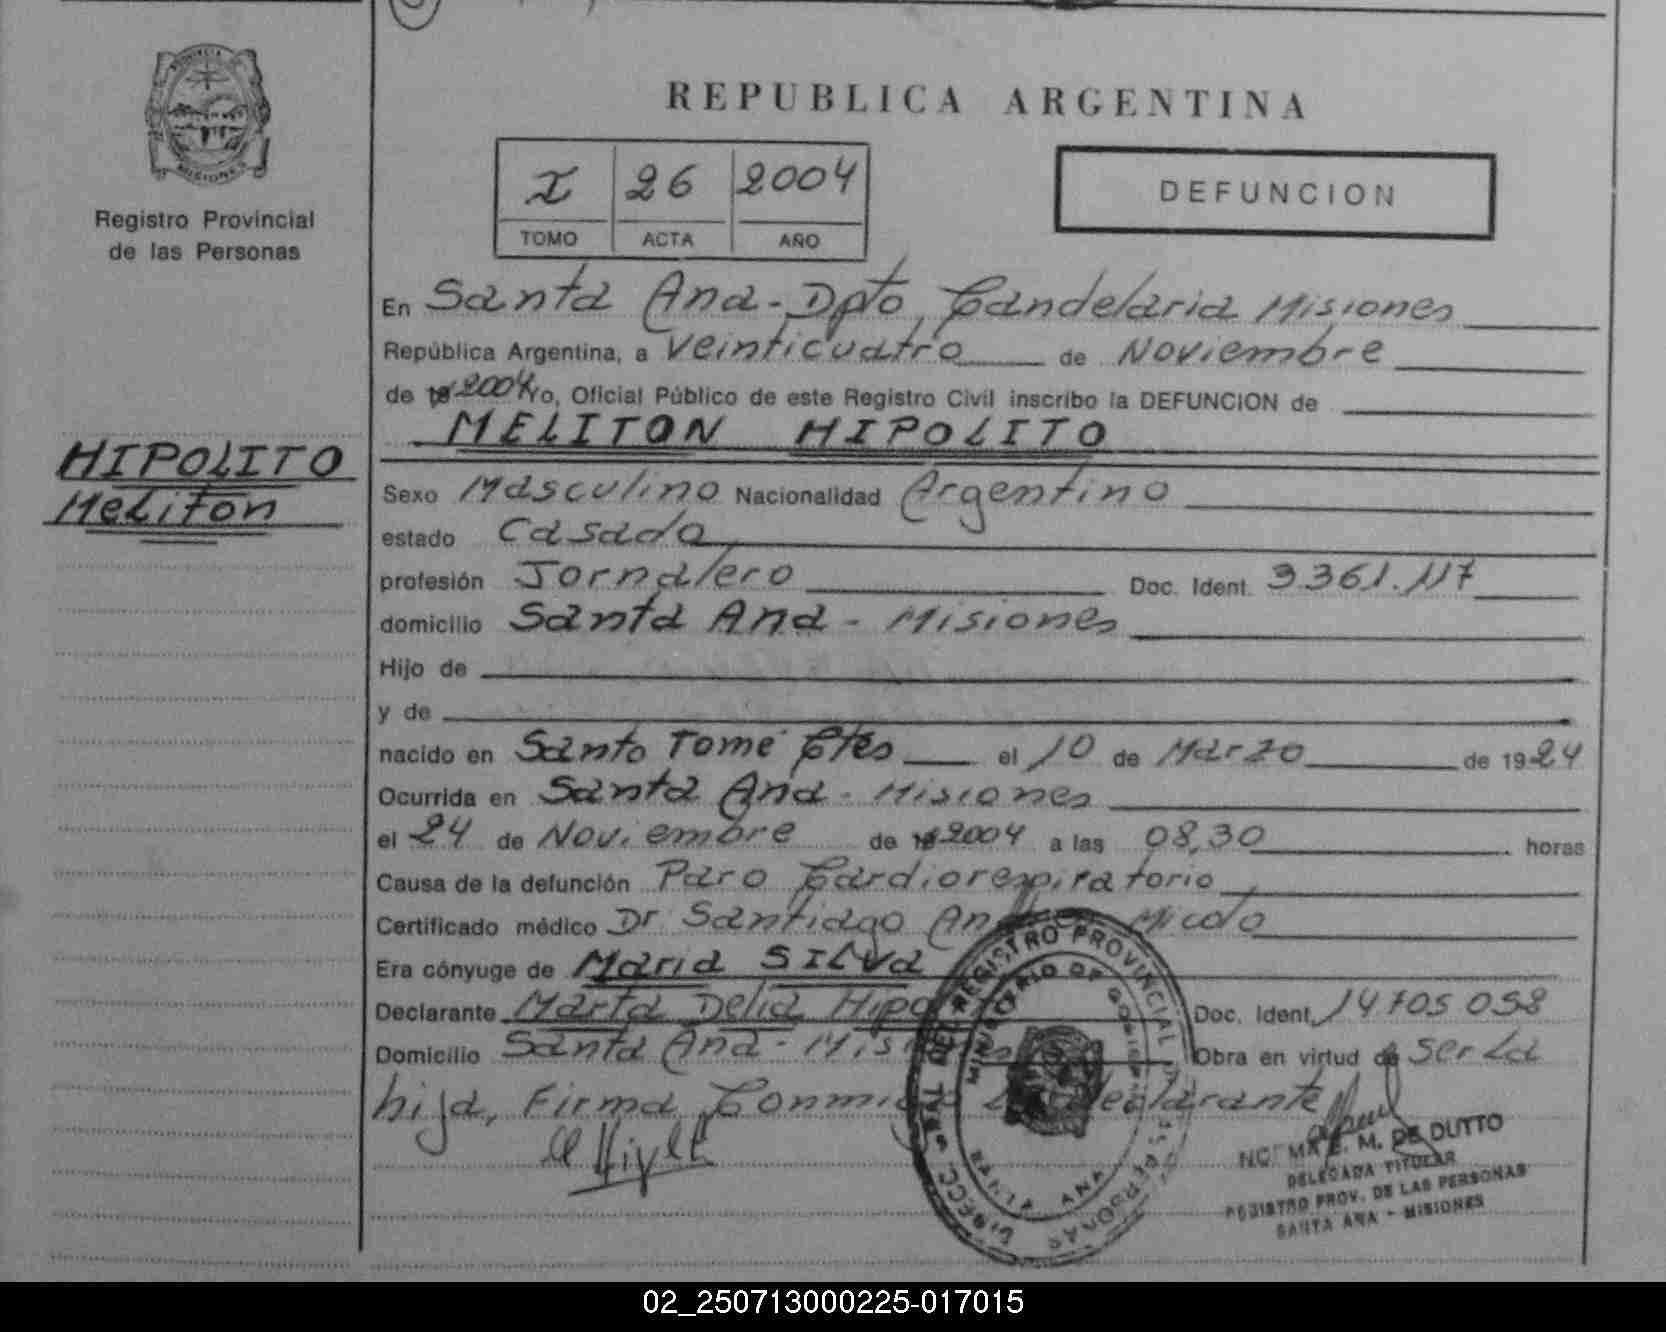 PROVINCIA
MISIONES
Registro Provincial
de las Personas
HIPOLITO
Meliton
REPUBLICA ARGENTINA
I 26 2004
TOMO ACTA AÑO
DEFUNCION
En Santa Ana - Dpto Candelaria Misiones
República Argentina, a veinticuatro de Noviembre
de 19 2004 Yo, Oficial Público de este Registro Civil inscribo la DEFUNCION de
MELITON HIPOLITO
Sexo Masculino Nacionalidad Argentino
estado Casado
profesión Jornalero Doc. Ident. 3.361.117
domicilio Santa Ana - Misiones
Hijo de
y de
nacido en Santo Tomé Ctes el 10 de Marzo de 1924
Ocurrida en Santa Ana - Misiones
el 24 de Noviembre de 19 2004 a las 08,30 horas
Causa de la defunción Paro Cardiorespiratorio
Certificado médico Dr. Santiago
Era cónyuge de Maria SILVA
Declarante Marta Delia Hipo Doc. Ident. 14705058
Domicilio Santa Ana - Misiones Obra en virtud de ser La
hija, Firma Conmigo La declarante
REGISTRO PROVINCIAL
DE LAS PERSONAS
MINISTERIO DE GOBIERNO
SANTA ANA
NORMA E. M. DE DUTTO
DELEGADA TITULAR
REGISTRO PROV. DE LAS PERSONAS
SANTA ANA - MISIONES
02_250713000225-017015